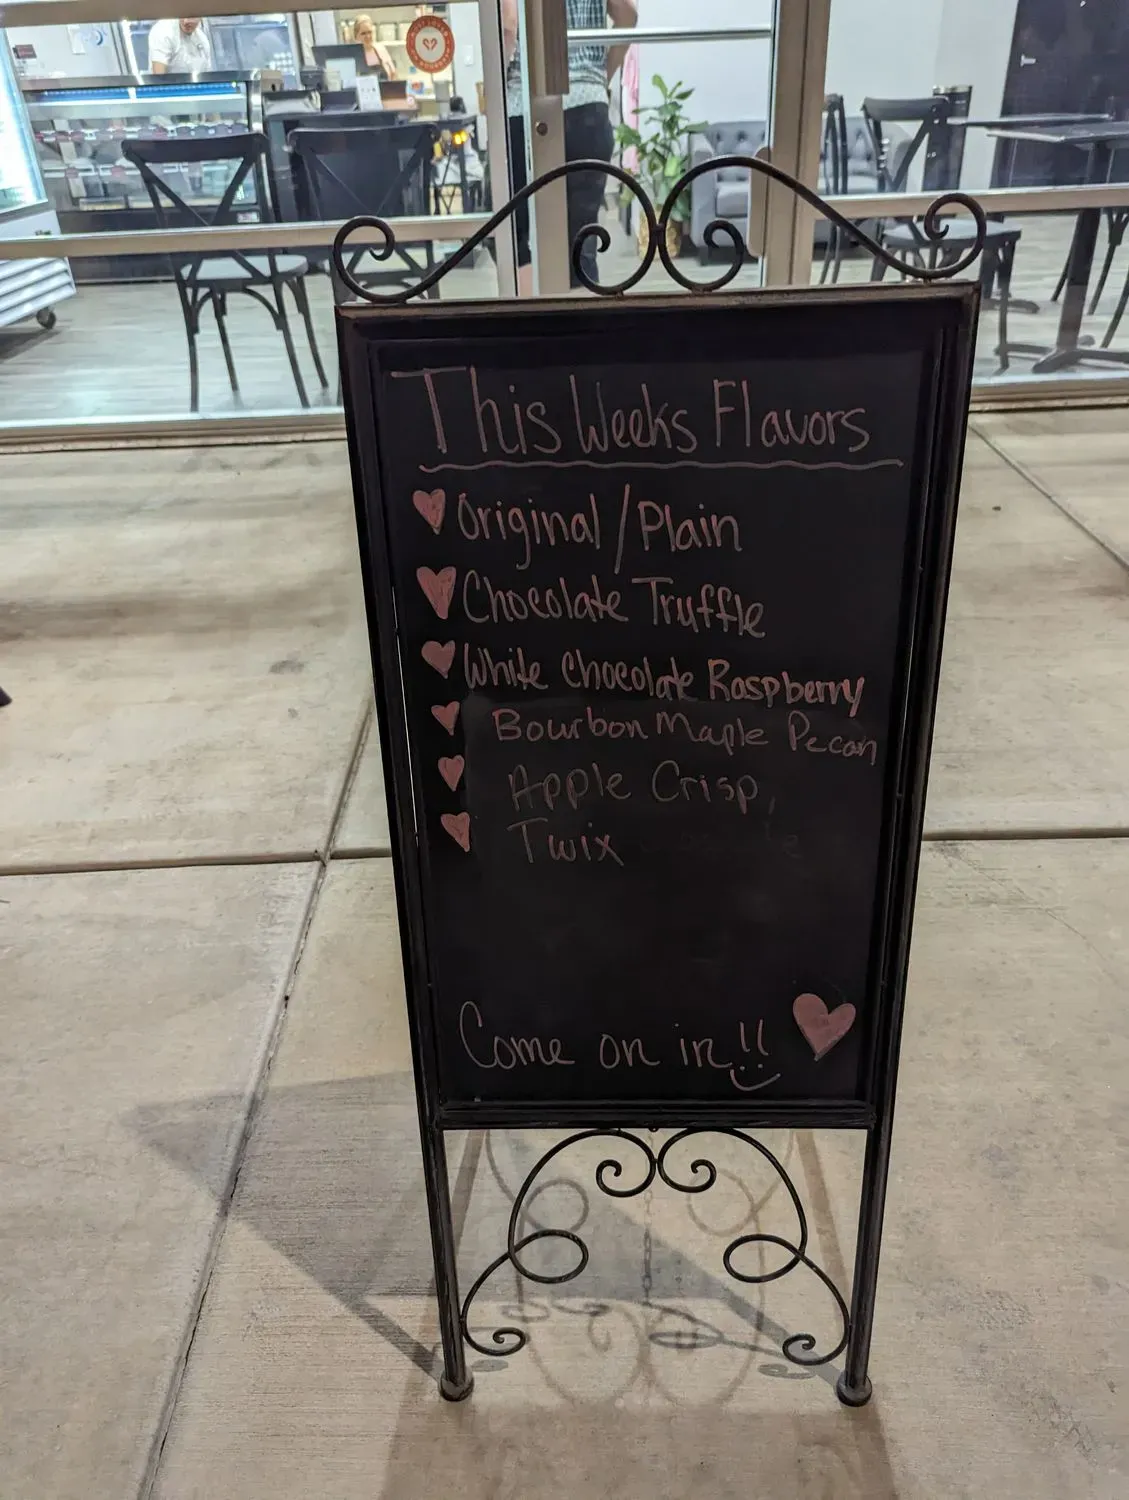 This Weeks Flavors
Original/Plain
Chocolate Truffle
White Chocolate Raspberry
Bourbon Maple Pecan
Apple Crisp,
Twix
Come on in!!